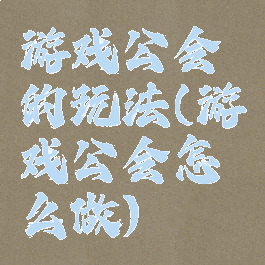 游戏公会
的玩法(游
戏公会怎
么做)